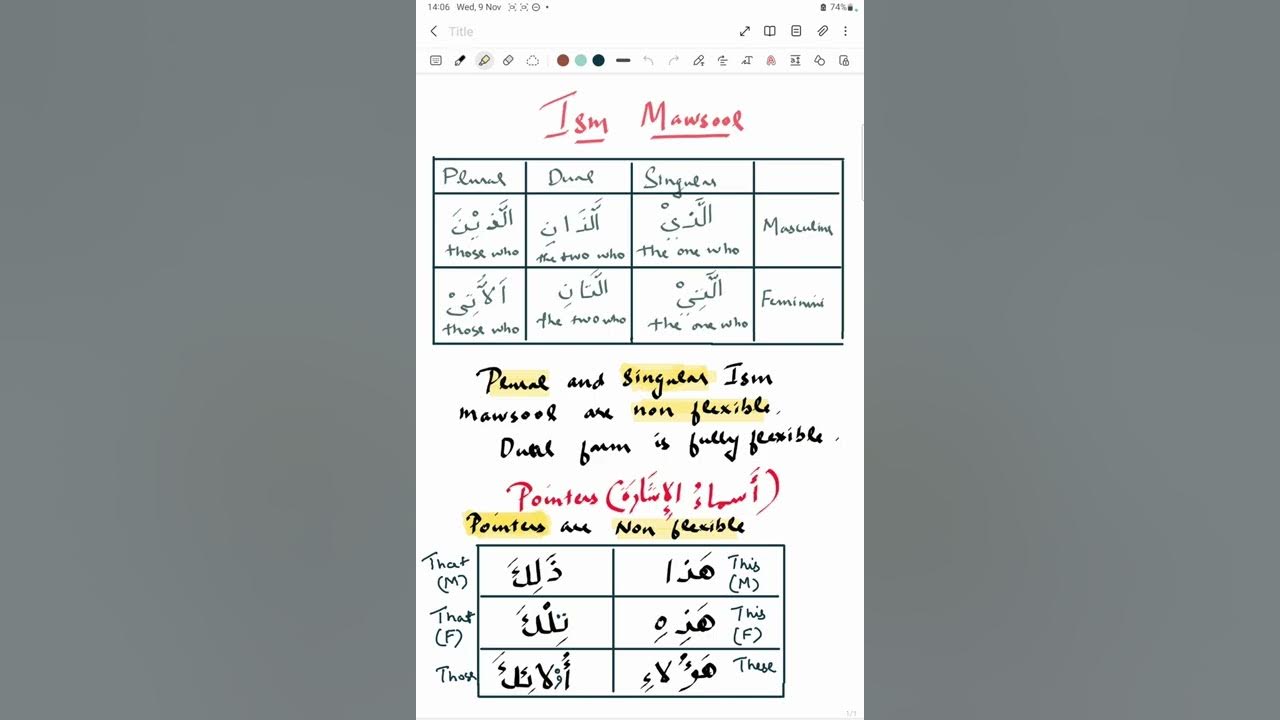 14:06 Wed, 9 Nov 74%
Title
Ism Mawsool
Plural Dual Singular
الَّذِيْنَ الَّذَانِ الَّذِيْ Masculine
those who the two who the one who
اَلاَّتِيْ الَّتَانِ الَّتِيْ Feminine
those who the two who the one who
Plural and Singular Ism
mawsool are non flexible.
Dual form is fully flexible.
Pointers (أَسماءُ الإِشَارَة)
Pointers are Non flexible
That (M) ذَلِكَ هَذا This (M)
That (F) تِلْكَ هَذِهِ This (F)
Those أُوْلائِكَ هَؤُلاءِ These
1/1